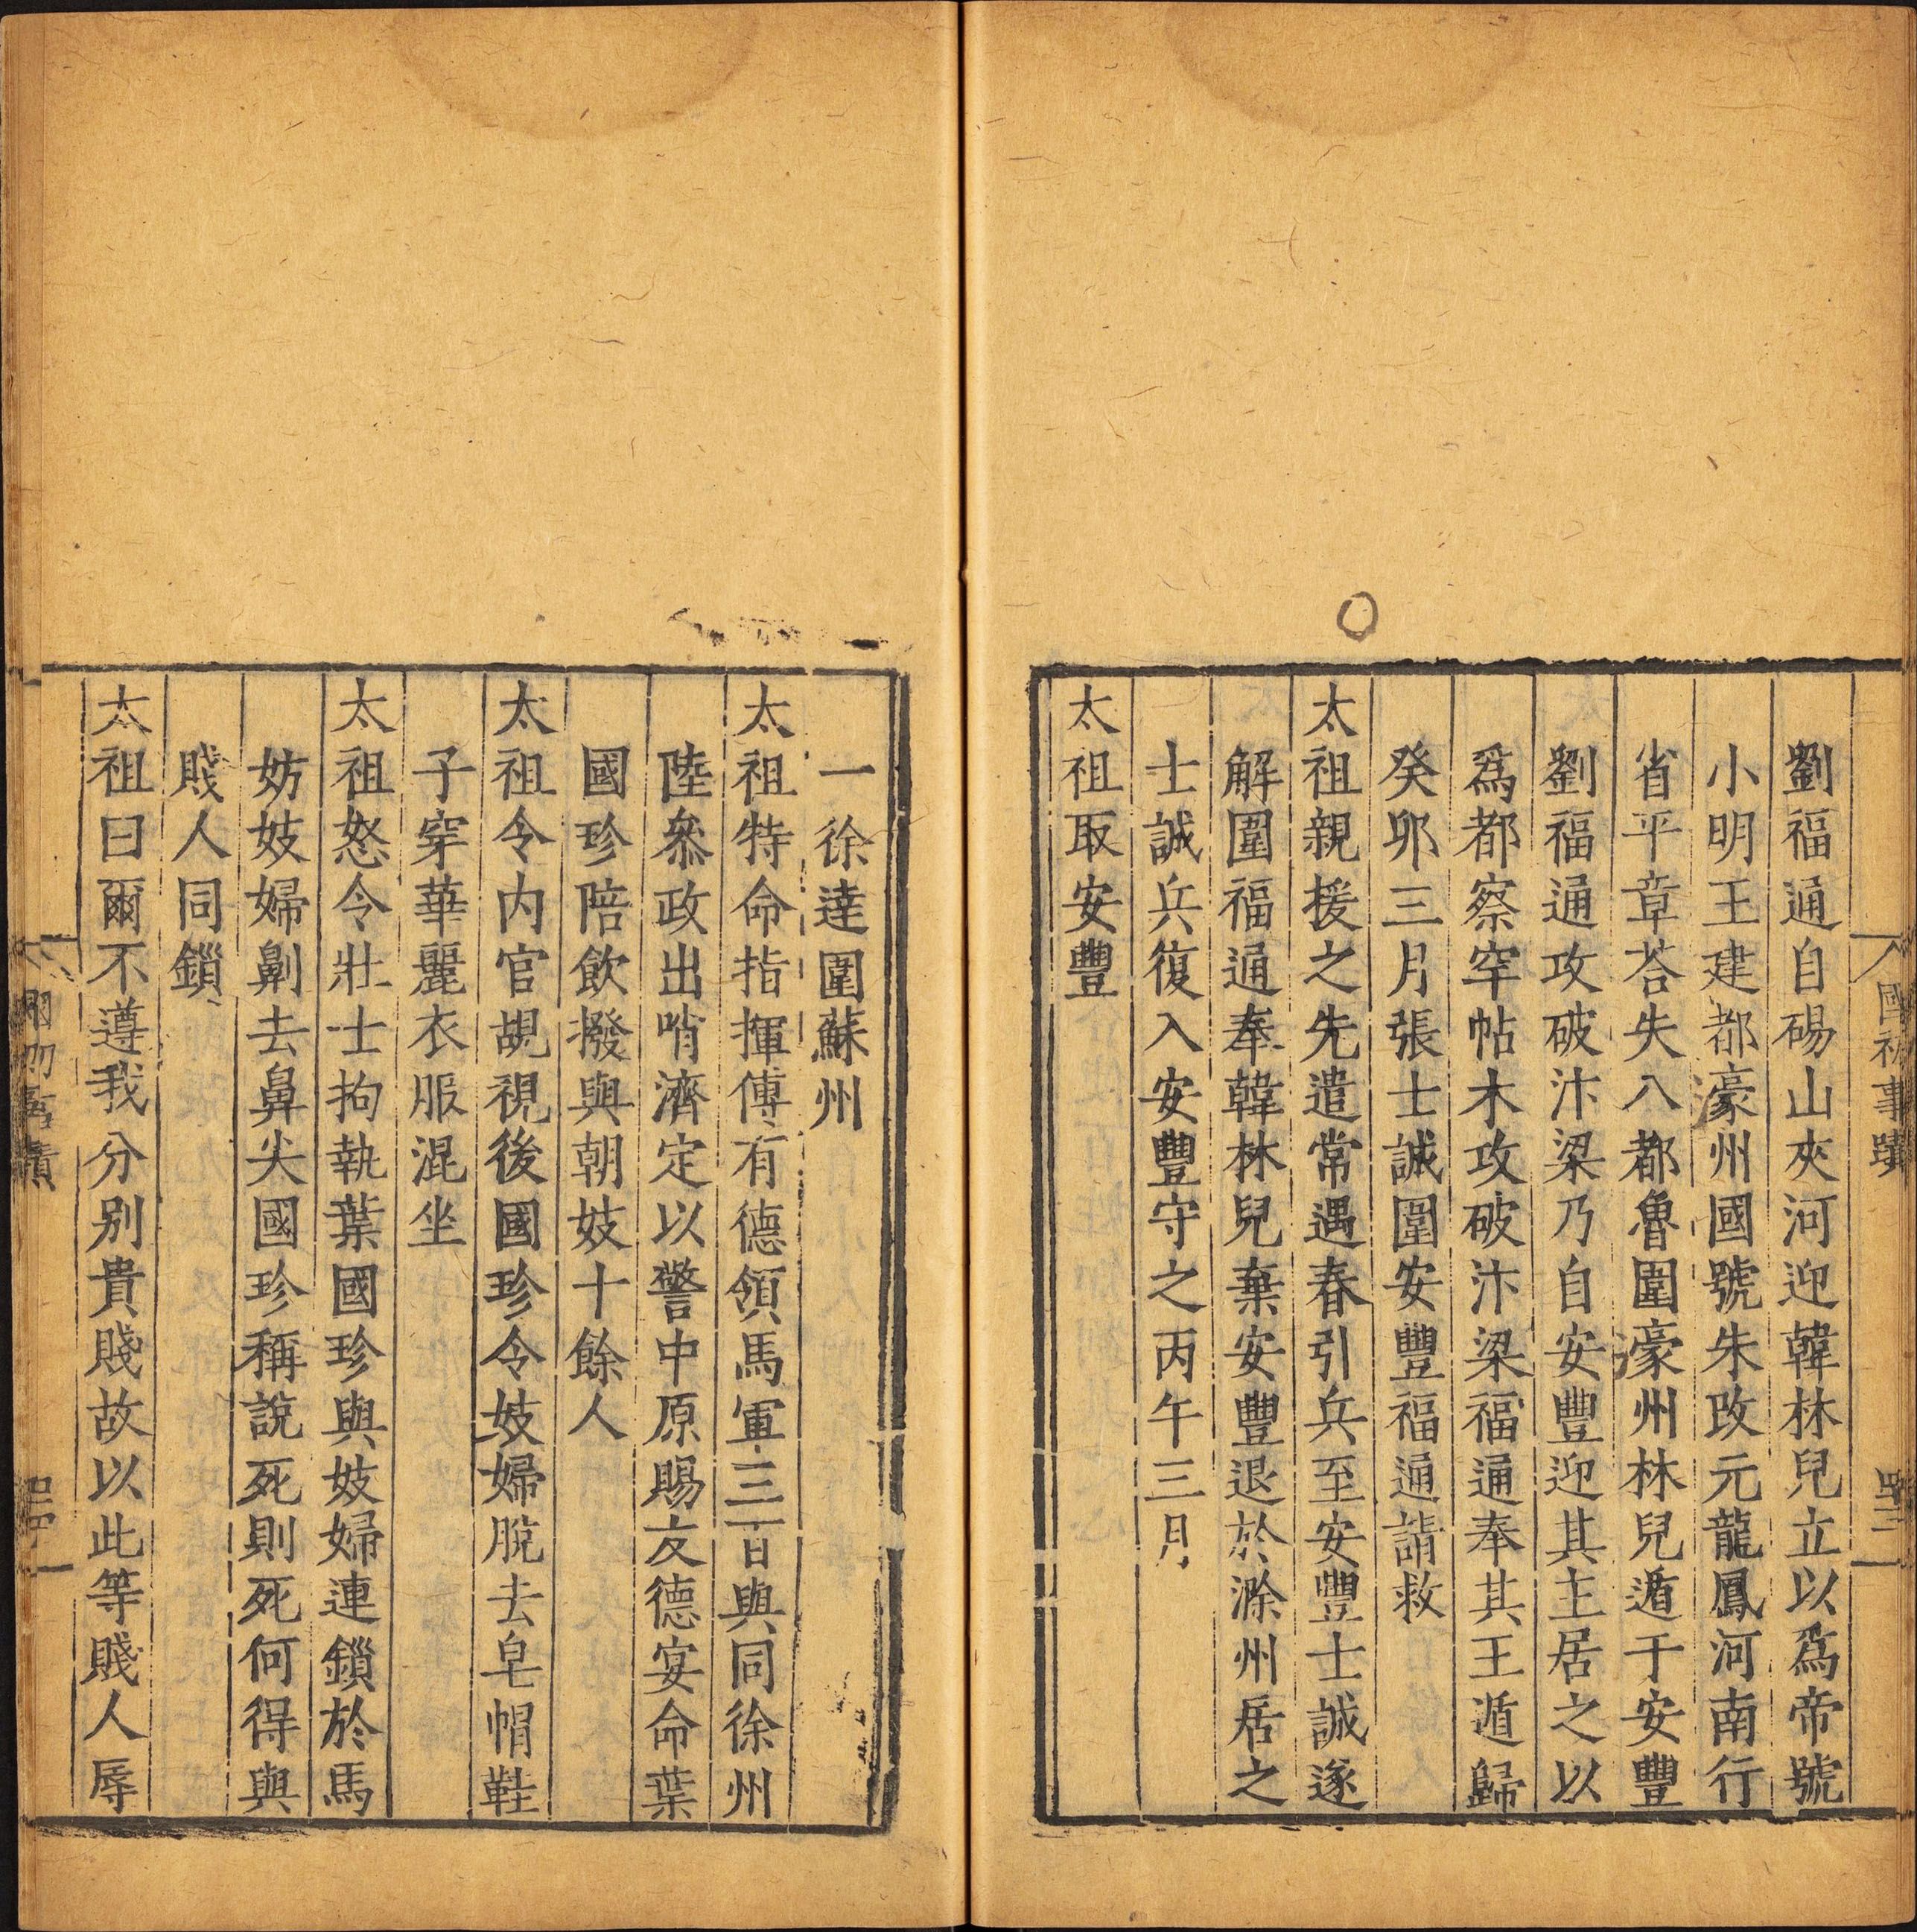 國初事蹟
四三
劉福通自碭山夾河迎韓林兒立以爲帝號
小明王建都濠州國號朱改元龍鳳河南行
省平章荅失八都魯圍濠州林兒遁于安豐
劉福通攻破汴梁乃自安豐迎其主居之以
爲都察罕帖木攻破汴梁福通奉其王遁歸
癸卯三月張士誠圍安豐福通請救
太祖親援之先遣常遇春引兵至安豐士誠遂
解圍福通奉韓林兒棄安豐退於滁州居之
士誠兵復入安豐守之丙午三月
太祖取安豐
一徐達圍蘇州
太祖特命指揮傅有德領馬軍三百與同徐州
陸叅政出哨濟定以警中原賜友德宴命葉
國珍陪飲撥與朝妓十餘人
太祖令内官覘視後國珍令妓婦脫去皂帽鞋
子穿華麗衣服混坐
太祖怒令壯士拘執葉國珍與妓婦連鎖於馬
妨妓婦劓去鼻尖國珍稱說死則死何得與
賤人同鎖
太祖曰爾不遵我分别貴賤故以此等賤人辱